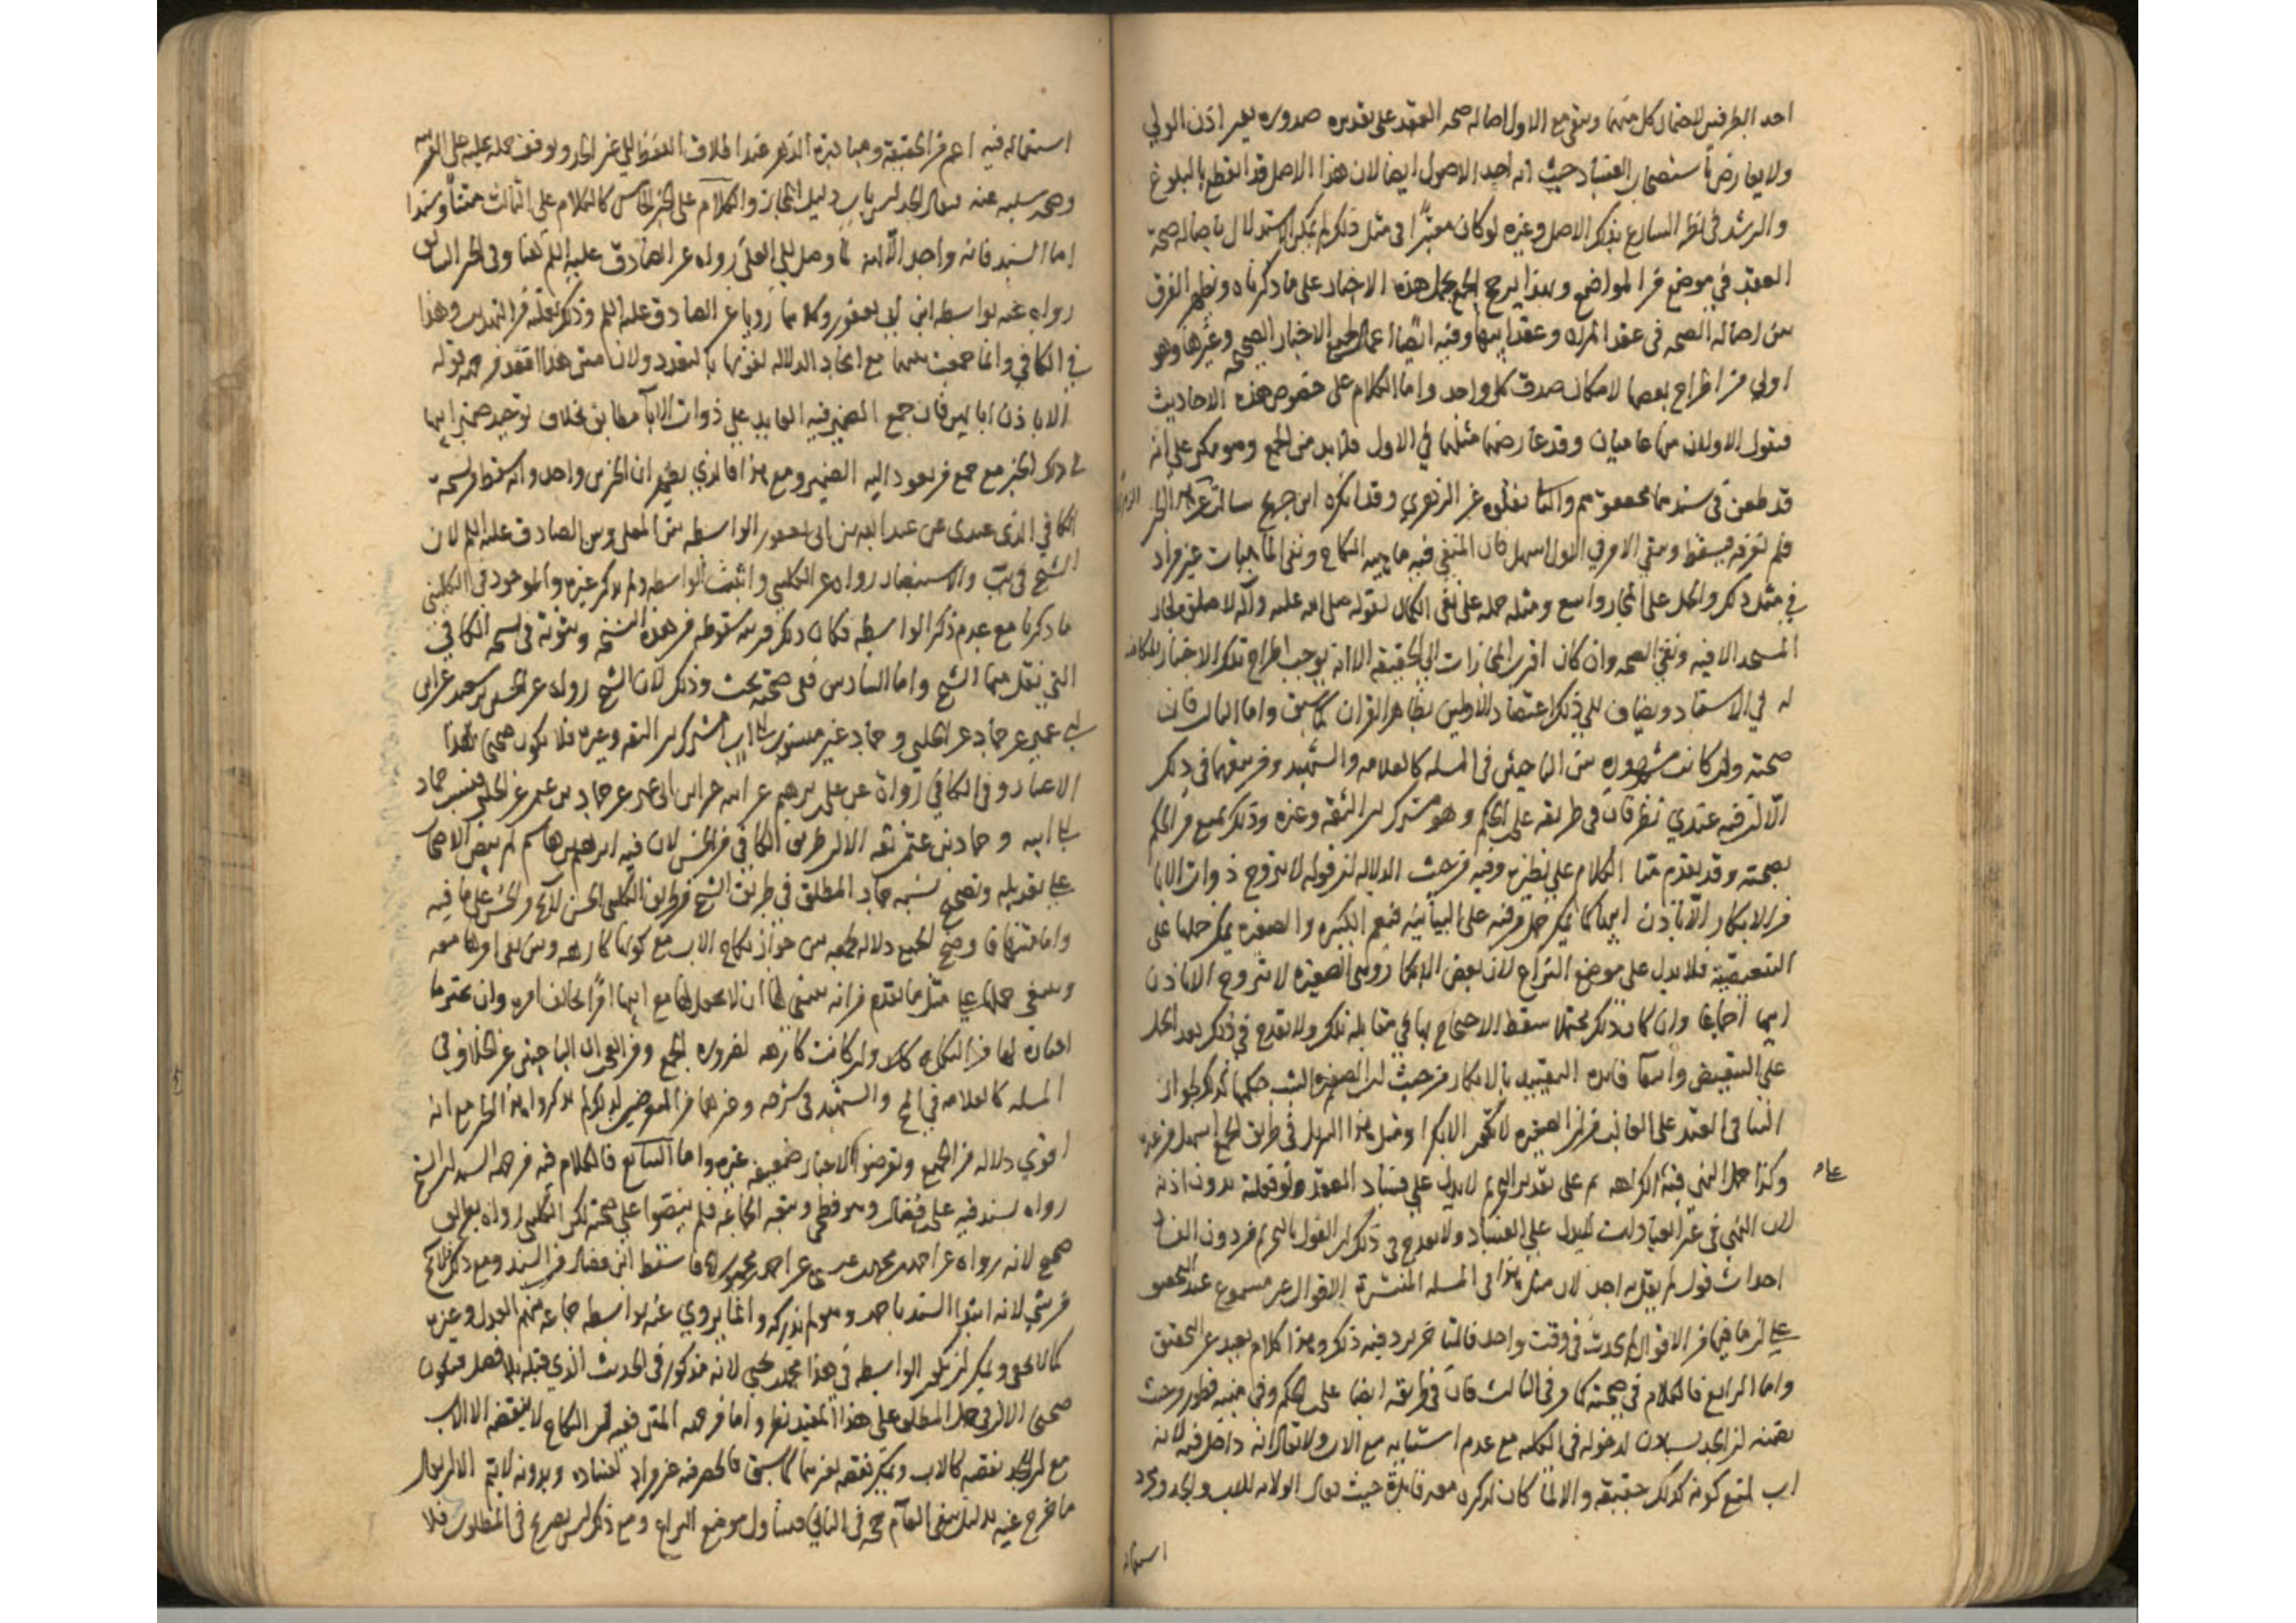 احد الطرفين لاحتمال كل منهما ويبقى مع الاول اصالة صحة العقد على تقدير صدوره بغير اذن الولي
ولا يعارض باستصحاب الفساد حيث انه احد الاصول ايضا لان هذا الاصل قد انقطع بالبلوغ
والرشد في نظر الشارع بذلك الاصل وغيره لو كان معتبرا في مثل ذلك لم يمكن الاستدلال باصالة صحة
العقد في موضع من المواضع وبهذا يرجح الجمع بحمل هذه الاخبار على ما ذكرناه ويظهر الفرق
بين اصالة الصحة في عقد المراة وعقد ابيها وفيه ايضا اعمال لجميع الاخبار الصحيحة وغيرها وهو
اولى من اطراح بعضها لامكان صدق كل واحد واما الكلام على خصوص هذه الاحاديث
فنقول الاولان منها عاميان وقد عارضهما مثلهما في الاول فلا بد من الجمع وهو ممكن على انه
قد طعن في سندهما محققوهم والثاني نقلوه عن الزهري وقد انكره ابن جريج سالت عن هذا الخبر
فلم يعرفه فيسقط ويبقى الامر في الاول اسهل فان المنفي فيه ماهية النكاح ونفي الماهيات غير مراد
في مثل ذلك والحمل على المجاز واسع ومثله حمله على نفي الكمال لقوله صلى الله عليه وآله لا صلوة لجار
المسجد الا فيه ونفي الصحة وان كان اقرب المجازات الى الحقيقة الا انه يوجب اطراح تلك الاخبار المكافئة
له في الاسناد ويضاف الى ذلك اعتضاد الاولين بظاهر القران كما سبق واما الثالث فان
صحته وان كانت مشهورة بين الباحثين في المسئلة كالعلامة والشهيد وغيرهما في ذلك
الا ان فيه عندي نظر فان في طريقه علي بن الحكم وهو مشترك بين الثقة وغيره وذلك يمنع من الحكم
بصحته وقد تقدم منا الكلام على نظيره وفيه من حيث الدلالة ان قوله لا تزوج ذوات الابا
من الابكار الا باذن ابيها كما يمكن حمل من فيه على البيانية فتعم الكبيرة والصغيرة يمكن حملها على
التبعيضية فلا يدل على موضع النزاع لان بعض الابكار وهي الصغيرة لا تزوج الا باذن
ابيها اجماعا واذا كان ذلك محتملا سقط الاحتجاج بها في مقابلة تلك ولا يقدح في ذلك بعد الحمل
على التبعيض وانتفا فائدة التقييد بالابكار من حيث ان الصغيرة الثيب حكمها كذلك لجواز
البنا في القيد على الغالب من ان الصغيرة لا تكون الا بكرا ومثل هذا التنزيل في طريق الجمع اسهل من غيره
وكذا حمل النهي فيه الكراهة ثم على تقدير التحريم لا يدل على فساد العقد لو فعلته بدون اذنه
لان النهي في غير العبادات لا يدل على الفساد ولا يقدح في ذلك ان القول بالتحريم من دون الفساد
احداث قول لم يقل به احد لان مثل هذا في المسئلة المنتشرة الاقوال غير مسموع عند المحصل
على ان ما فيها من الاقوال لم يحدث في وقت واحد فالمتاخر يرد فيه ذلك وهذا كلام بعيد عن التحقيق
واما الرابع فالكلام في صحته كما مر في الثالث فان في طريقه ايضا علي بن الحكم وفي متنه قصور من حيث
تضمنه ان الجد يستاذن لدخوله في الكلية مع عدم استثنائه مع الاب ولا يقال انه داخل فيه لانه
اب لمنع كونه كذلك حقيقة والا لما كان لذكره معه فائدة حيث يقال الولاية للاب والجد ومجرد
استعماله
استعماله فيه اعم من الحقيقة ومبادرة الذهن عند اطلاق اللفظ الى غير الجد وتوقف حمله عليه على القرينة
وصحة سلبه عنه فيقال الجد ليس باب دليل المجاز والكلام على الخبر الخامس كالكلام على الثالث متنا وسندا
اما السند فانه واحد الا انه لما وصل الى العلا رواه عن الصادق عليه السلم هنا وفي الخبر الثالث
رواه عنه بواسطة ابن ابي يعفور وكلاهما رويا عن الصادق عليه السلم وذكر نقله من التهذيب وهذا
في الكافي وانما جمعت بينهما مع اتحاد الدلالة لفوتها بالتعدد ولان متن هذا اقعد من جهة قوله
الا باذن ابائهن فان جمع الضمير فيه العايد على ذوات الابآ مطابق بخلاف توحيد ضمير ابيها
في ذلك الخبر مع جمع من يعود اليه الضمير ومع هذا فالذي يظهر ان الخبرين واحد وانه سقط من نسخة
الكافي الذي عندي عن عبد الله بن ابي يعفور الواسطة بين العلا وبين الصادق عليه السلم لان
الشيخ في يب والاستبصار رواه عن الكليني واثبت الواسطة ولم يذكر غيره والموجود في الكليني
ما ذكرنا مع عدم ذكر الواسطة فكان ذلك قرينة سقوطه من هذه النسخ وثبوته في نسخة الكافي
التي نقل منها الشيخ واما السادس ففي صحته بحث وذلك لان الشيخ رواه عن الحسين بن سعيد عن ابن
ابي عمير عن حماد عن الحلبي وحماد غير منسوب الى اب مشترك بين الثقة وغيره فلا يكون صحيحا بهذا
الاعتبار وفي الكافي رواه عن علي بن ابرهيم عن ابيه عن ابن ابي عمير عن حماد بن عثمن عن الحلبي فنسب حماد
الى ابيه وحماد بن عثمن ثقة الا ان طريق الكافي من الحسن لان فيه ابرهيم بن هاشم لم ينص الاصحاب
على تعديله وتصحيح نسبة حماد المطلق في طريق الشيخ من طريق الكليني الحسن لا يخرج عن الحسن على ما فيه
واما متنها فاوضح الجميع دلالة لجمعه بين جواز نكاح الاب مع كونها كارهة وبين نفي امرها معه
وينبغي حملها على مثل ما تقدم من انه ينبغي لها ان لا تجعل لها مع ابيها امرا يخالف امره وان يختر ما
اختاره لها من النكاح كالا وان كانت كارهة لضرورة الجمع ومن العجب ان الباحثين عن الخلاف في
المسئلة كالعلامة في المخ والشهيد في شرحه وغيرهما من المتعرضين لذلك لم يذكروا هذا الخبر مع انه
اقوى دلالة من الجميع وتعرضوا لاخبار ضعيفة غيره واما السابع فالكلام فيه من جهة السند ان الشيخ
رواه بسند فيه علي بن فضال وهو فطحي وتبعه الجماعة فلم ينصوا على صحته لكن الكليني رواه بطريق
صحيح لانه رواه عن احمد بن محمد بن عيسى عن احمد بن محمد بن ابي فاسقط ابن فضال من السند ومع ذلك فلا يخ
من شي لانه ابتدا السند باحمد وهو لم يدركه وانما يروي عنه بواسطة جماعة منهم العدل وغيره
كما لا يخفى ويمكن ان تكون الواسطة في هذا محمد بن يحيى لانه مذكور في الحديث الذي قبله بلا فصل فيكون
صحيحا الا ان في حمل المطلق على هذا المقيد نظر واما من جهة المتن ففيه ان النكاح لا ينقضه الا الاب
مع ان الجد ينقضه كالاب ويمكن نقضه بغيرهما كما سبق فالحصر فيه غير مراد لفساده وبدونه لا يتم الا ان يقال
ما خرج عنه بدليل يبقى العام حجة في الباقي فيتناول موضع النزاع ومع ذلك ليس بصريح في المطلوب فلا